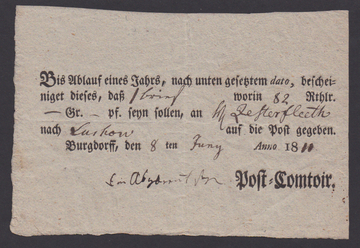 Bis Ablauf eines Jahrs, nach unten gesetztem dato, beschei-
niget dieses, daß 1 brief worin 82 Rthlr.
— Gr. — pf. seyn sollen, an
nach auf die Post gegeben.
Burgdorff, den 8 ten Juny Anno 18
Post-Comtoir.